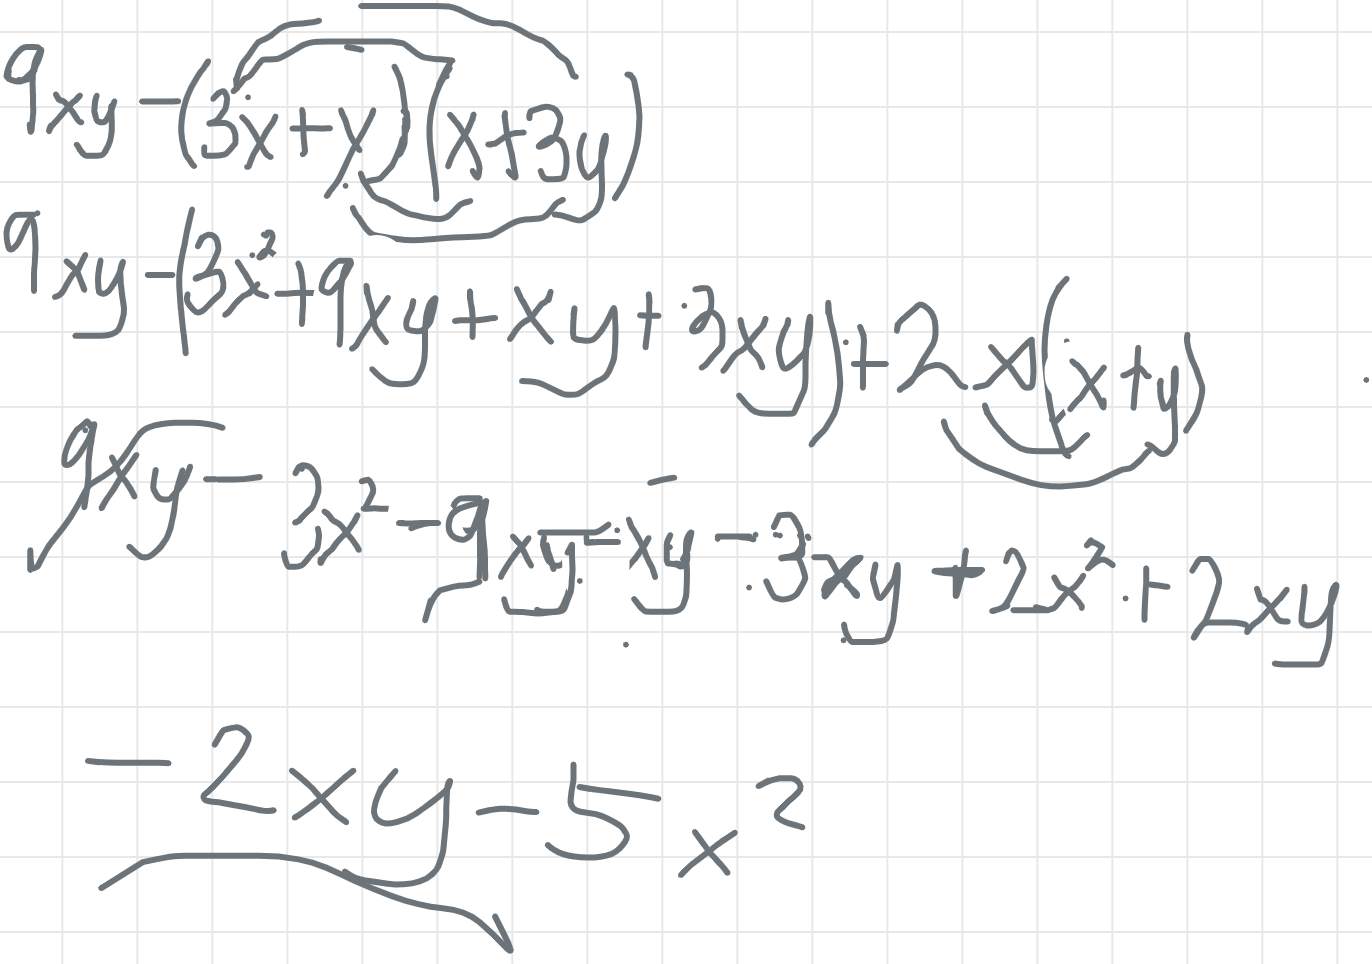 9xy-(3x+y)(x+3y)
9xy-(3x²+9xy+xy+3xy)+2x(x+y)
9xy-3x²-9xy-xy-3xy+2x²+2xy
-2xy-5x²